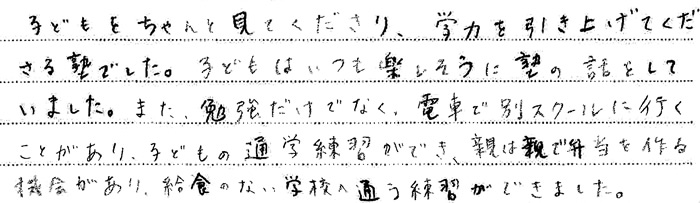 子どもをちゃんと見てくださり、学力を引き上げてくだ
さる塾でした。子どもはいつも楽しそうに塾の話をして
いました。また、勉強だけでなく、電車で別スクールに行く
ことがあり、子どもの通学練習ができ、親は親で弁当を作る
機会があり、給食のない学校へ通う練習ができました。